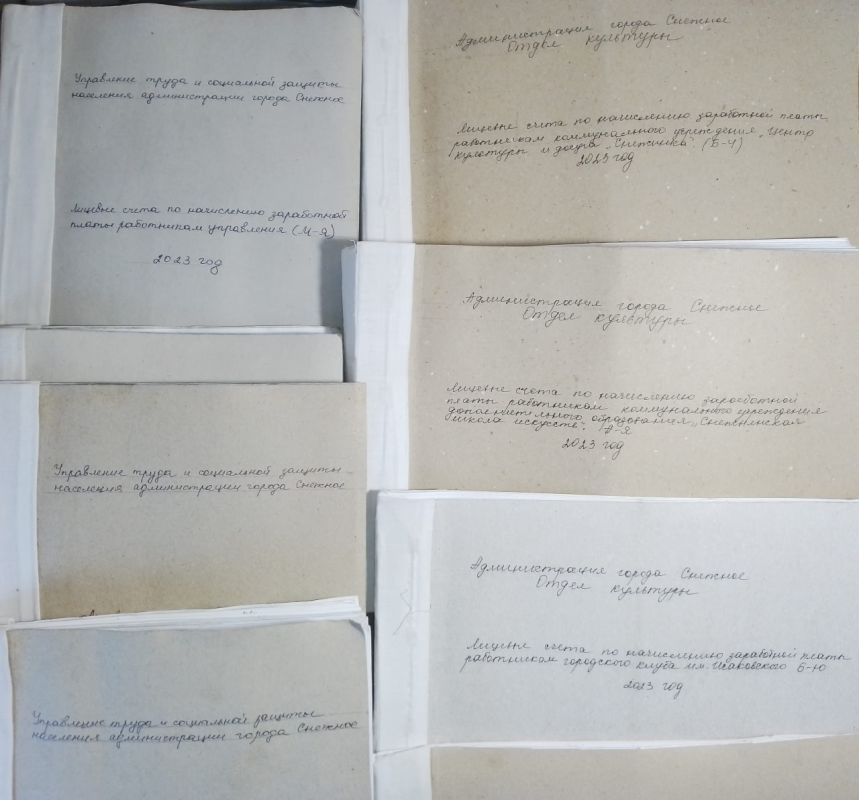 Управление труда и социальной защиты
населения администрации города Снежное
Лицевые счета по начислению заработной
платы работникам управления (М-Я)
2023 год
Управление труда и социальной защиты
населения администрации города Снежное
Управление труда и социальной защиты
населения администрации города Снежное
Администрация города Снежное
Отдел культуры
Лицевые счета по начислению заработной платы
работникам коммунального учреждения „Центр
культуры и досуга „Снежинка". (Б-Ч)
2023 год
Администрация города Снежное
Отдел культуры
Лицевые счета по начислению заработной
платы работникам коммунального учреждения
дополнительного образования „Снежнянская
школа искусств".
2023 год
Администрация города Снежное
Отдел культуры
Лицевые счета по начислению заработной платы
работникам городского клуба им. Исаковского Б-Ю
2023 год